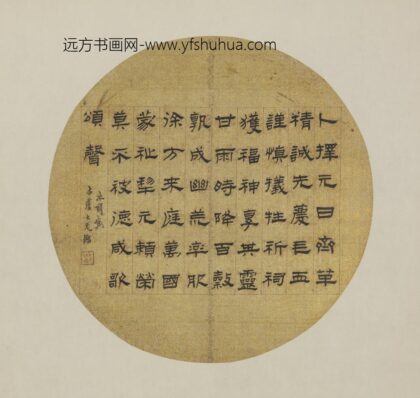 远方书画网-www.yfshuhua.com
卜擇元日齊革
精誠
謹慎犧牲祈祠
獲福神享其靈
甘雨時降百穀
孰成幽荒率服
徐方來庭萬國
蒙祉黎元賴榮
莫不被德咸歌
頌聲